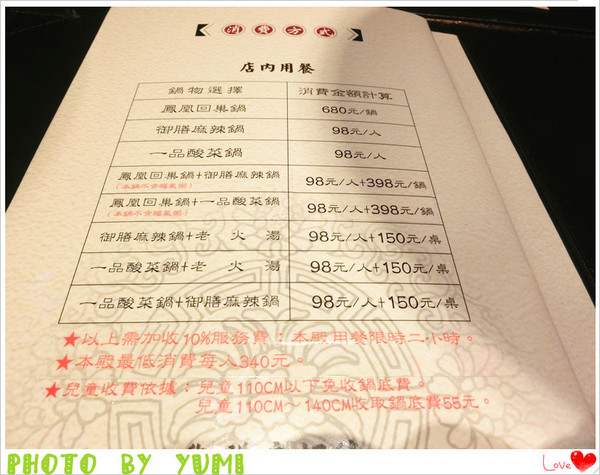 消費方式
店內用餐
鍋物選擇 消費金額計算
鳳凰回巢鍋 680元/鍋
御膳麻辣鍋 98元/人
一品酸菜鍋 98元/人
鳳凰回巢鍋+御膳麻辣鍋 98元/人+398元/鍋
鳳凰回巢鍋+一品酸菜鍋 98元/人+398元/鍋
御膳麻辣鍋+老火湯 98元/人+150元/桌
一品酸菜鍋+老火湯 98元/人+150元/桌
一品酸菜鍋+御膳麻辣鍋 98元/人+150元/桌
★以上需加收10%服務費;本殿用餐限時二小時。
★本殿最低消費每人340元。
★兒童收費依據:兒童110CM以下免收鍋底費。
兒童110CM~140CM收取鍋底費55元。
PHOTO BY YUMI
Love